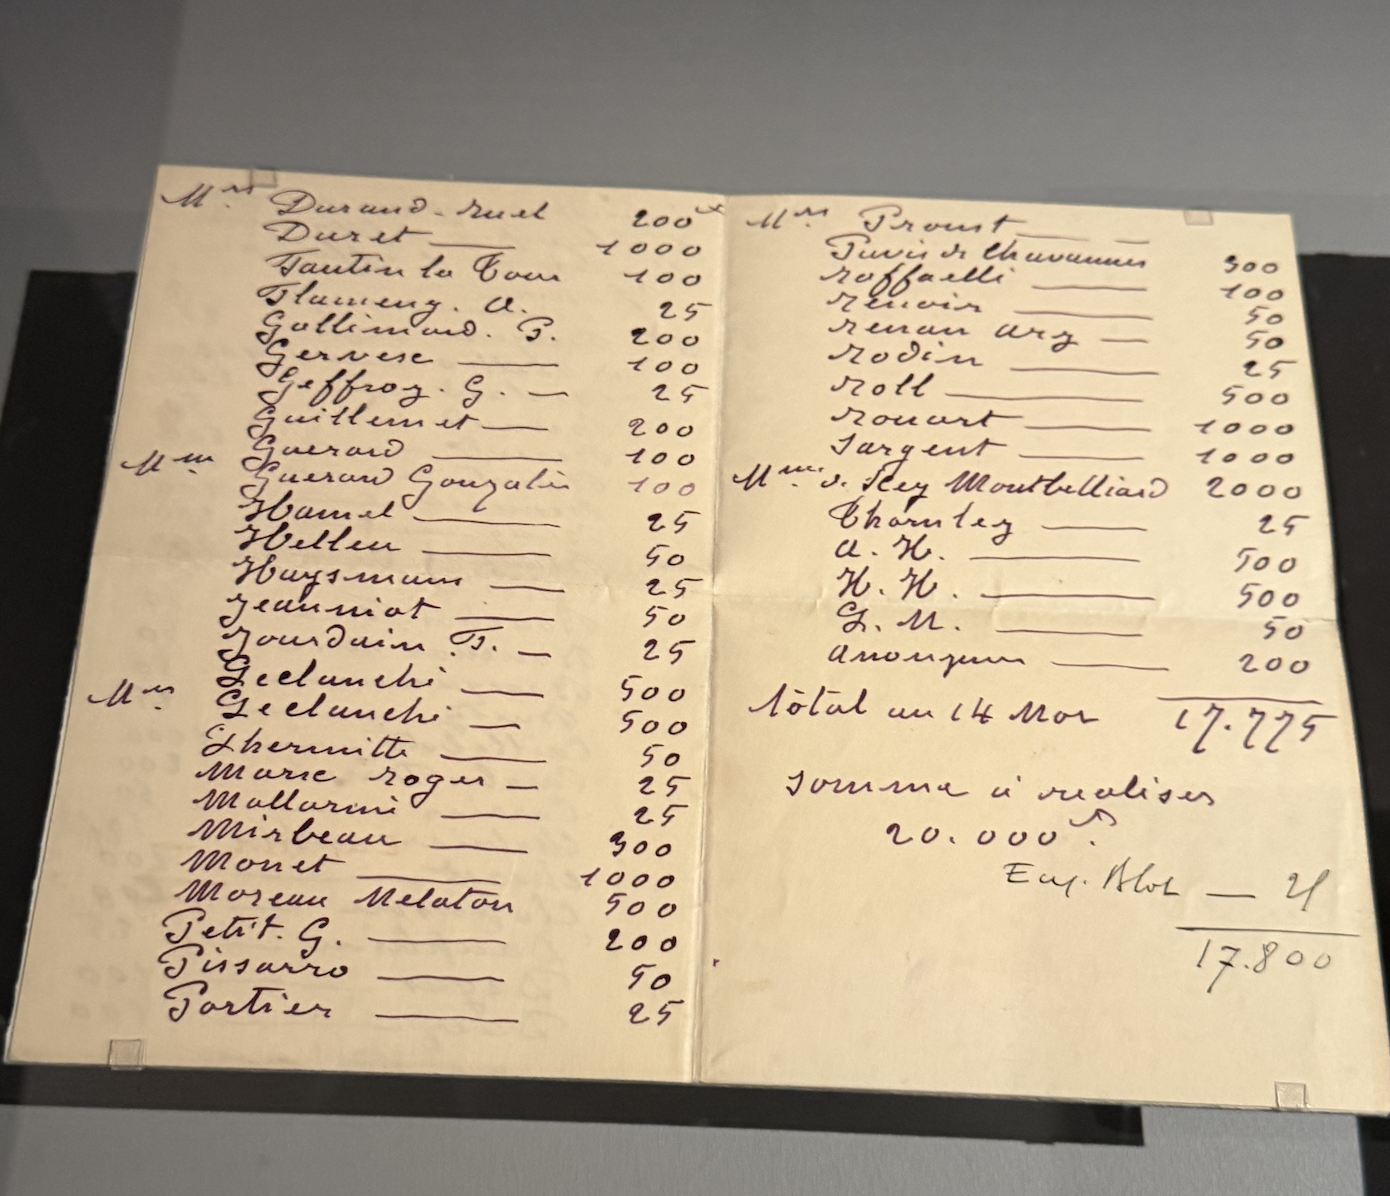 Mrs. Durand-ruel 200 x
Duret 1000
Fantin la Tour 100
Flameng. A. 25
Gallimard. P. 200
Gervese 100
Geffroy. G. 25
Guillemet 200
Guerard 100
Mme Guerard Gonzalès 100
Hamel 25
Helleu 50
Huysmans 25
Jeanniot 50
Jourdain F. 25
Leclanché 500
Leclanché 500
Lhermitte 50
Marx roger 25
Mallarmé 25
Mirbeau 300
Monet 1000
Moreau Nelaton 500
Petit. G. 200
Pissarro 50
Portier 25
Mrs. Proust
Puvis de Chavannes 300
raffaelli 100
renoir 50
renan ary 50
rodin 25
roll 500
rouart 1000
Sargent 1000
Mme. de Scey Montbelliard 2000
Thornley 25
A. H. 500
H. H. 500
L. M. 50
anonyme 200
total au 14 Mar 17.775
somme à realiser
20.000 f.
Eug. Blot 25
17.800